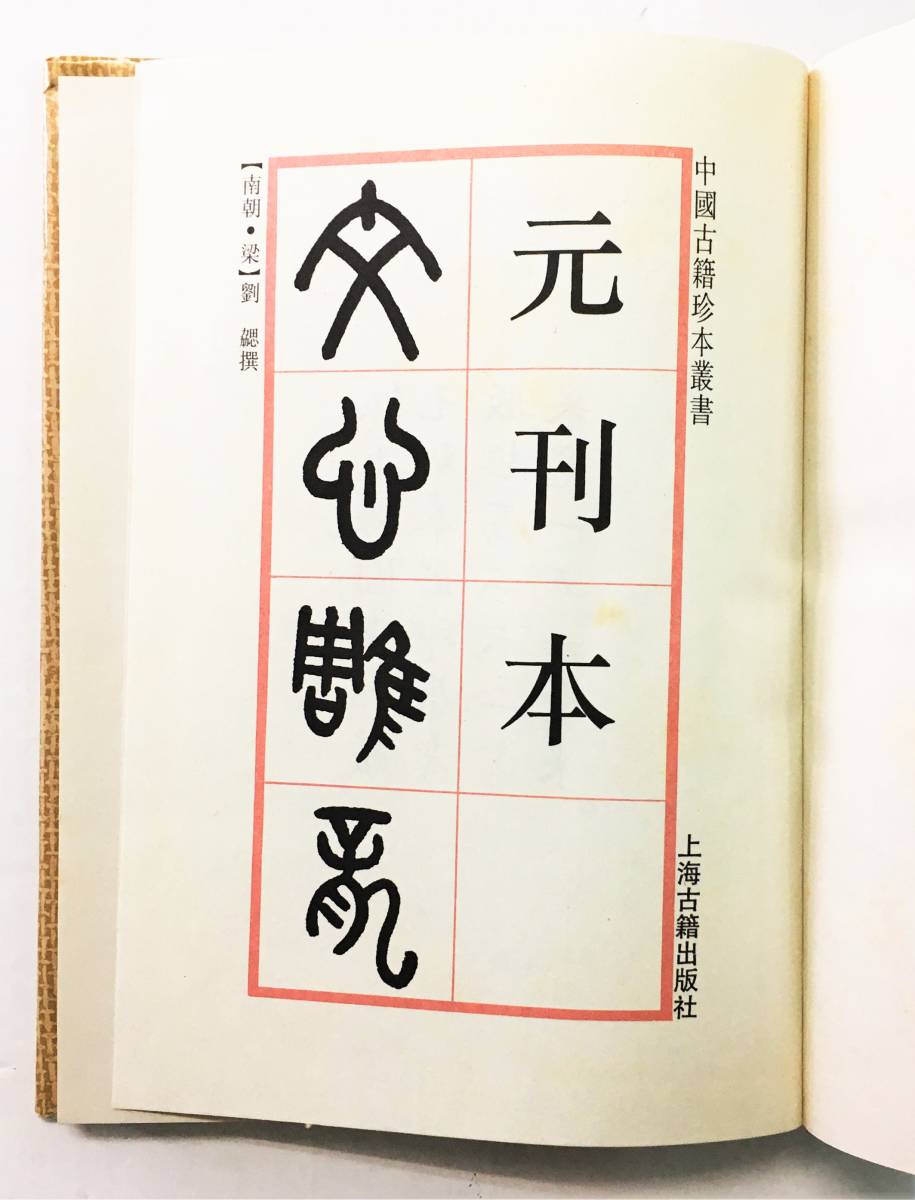 中國古籍珍本叢書
元刊本
文心雕龍
【南朝•梁】劉 勰撰
上海古籍出版社